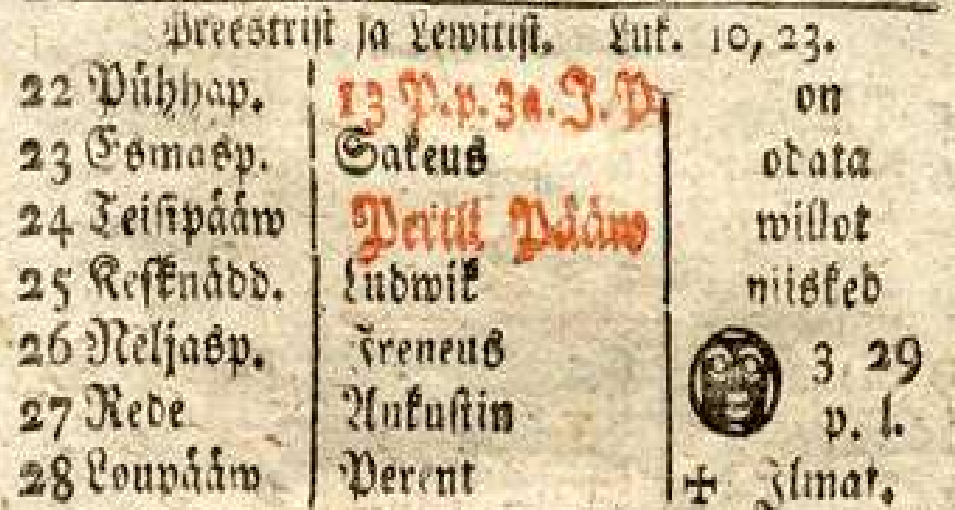 Preestrist ja Lewitist. Luk. 10, 23.
22 Pühhap. 13 P. p. 3a. J. P. on
23 Esmasp. Sakeus odata
24 Teisipääw Pertli Pääw willot
25 Kesknädd. Ludwik niisked
26 Neljasp. Ireneus 3 29
27 Rede Aukustin p. l.
28 Loupääw Perent ✠ Ilmak.